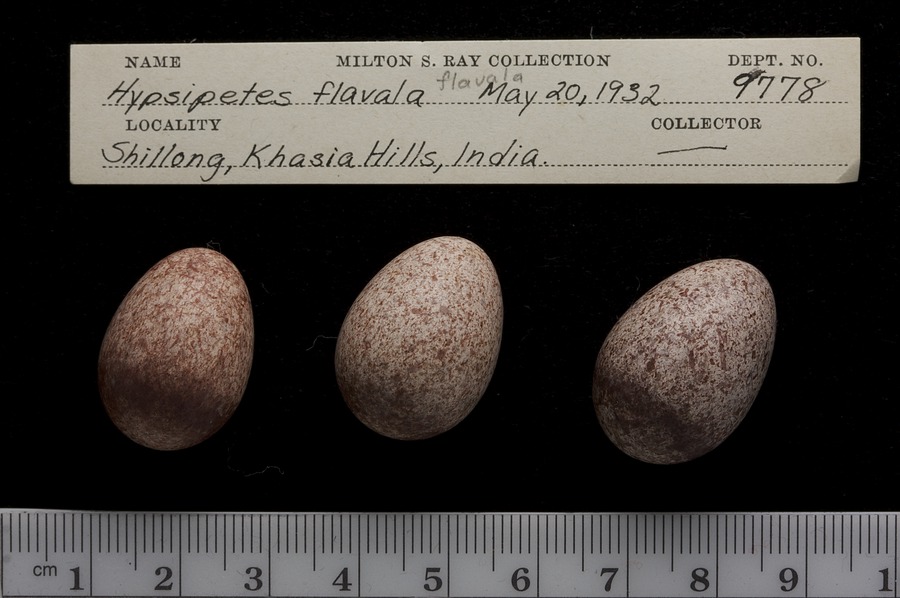 NAME MILTON S. RAY COLLECTION DEPT. NO.
flavala
Hypsipetes flavala May 20, 1932 9778
LOCALITY COLLECTOR
Shillong, Khasia Hills, India.
cm 1 2 3 4 5 6 7 8 9 1